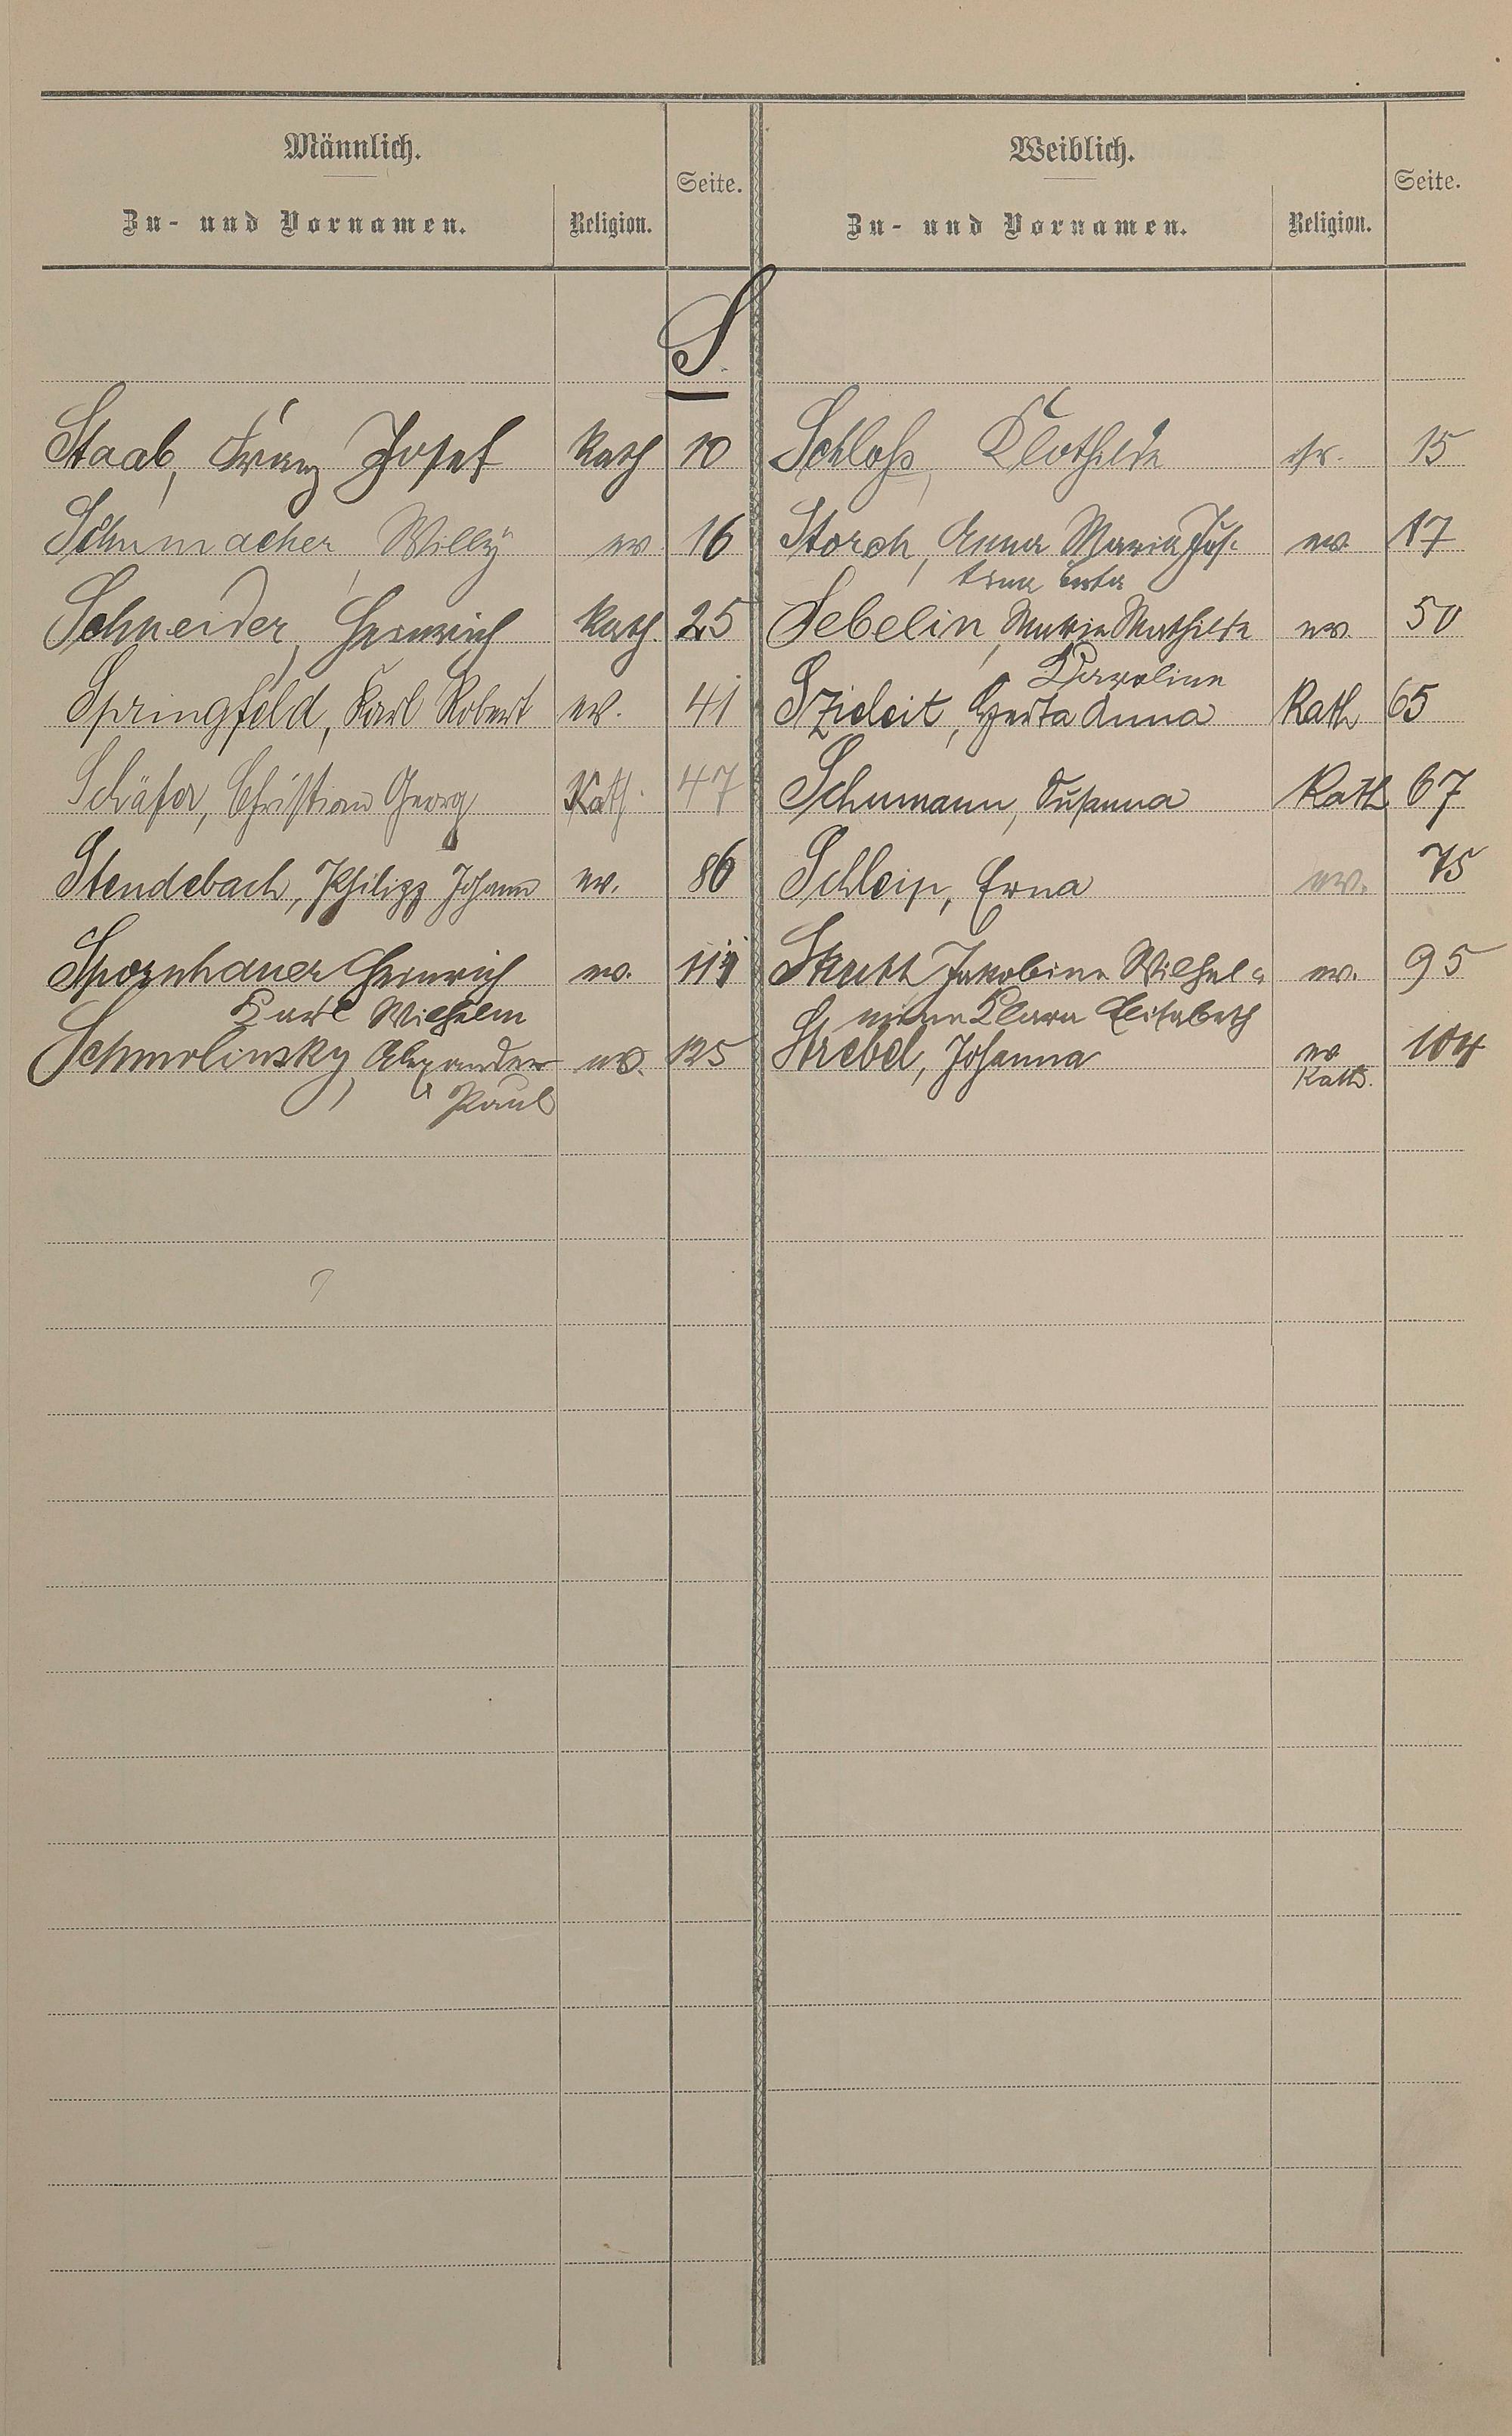 Männlich.
Seite.
Zu- und Vornamen.
Religion.
Weiblich.
Seite.
Zu- und Vornamen.
Religion.
S.
Staab, Franz Josef kath 10
Schumacher, Willy ev. 16
Schneider, Heinrich kath. 25
Springfeld, Karl Robert ev. 41
Schäfer, Christian Georg Kath. 47
Stendebach, Philipp Johann ev. 86
Spornhauer Heinrich ev. 111
Karl Wilhelm
Schmolinsky, Alexander ev. 125
Paul
Schloss, Klothilde isr. 15
Storch, Anna Maria Jus= ev. 17
tina Berta
Sebelin, Maria Mathilde ev. 50
Karoline
Szideit, Herta Anna Kath 65
Schumann, Susanna Kath 67
Schleip, Erna ev. 75
Jakobine Wilhel= ev. 95
mine Klara Elisabeth
Strebel, Johanna ev 104
Kath.